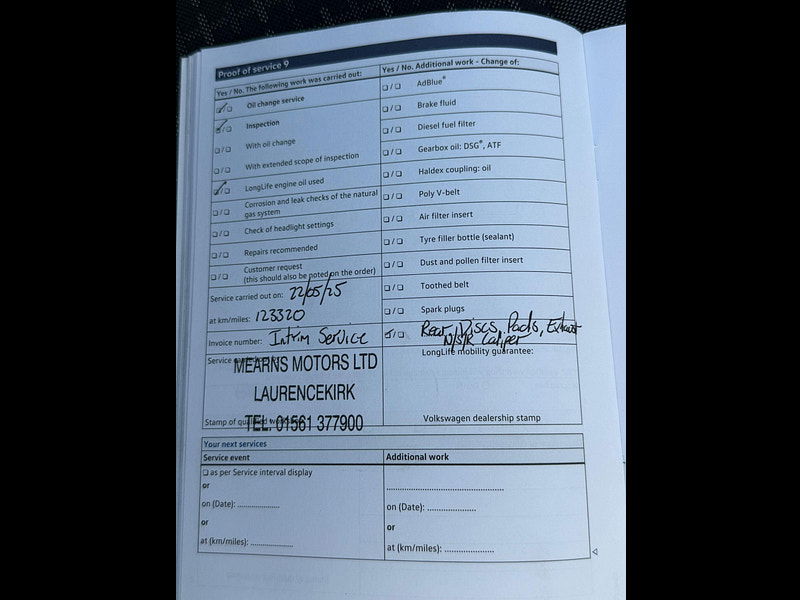 Proof of service 9
Yes / No. The following work was carried out:
❑/❑ Oil change service
❑/❑ Inspection
❑/❑ With oil change
❑/❑ With extended scope of inspection
❑/❑ LongLife engine oil used
❑/❑ Corrosion and leak checks of the natural
gas system
❑/❑ Check of headlight settings
❑/❑ Repairs recommended
❑/❑ Customer request
(this should also be noted on the order)
Service carried out on: 22/05/25
at km/miles: 123320
Invoice number: Intrim Service
MEARNS MOTORS LTD
LAURENCEKIRK
Stamp of
TEL: 01561 377900
Yes / No. Additional work - Change of:
❑/❑ AdBlue®
❑/❑ Brake fluid
❑/❑ Diesel fuel filter
❑/❑ Gearbox oil: DSG®, ATF
❑/❑ Haldex coupling: oil
❑/❑ Poly V-belt
❑/❑ Air filter insert
❑/❑ Tyre filler bottle (sealant)
❑/❑ Dust and pollen filter insert
❑/❑ Toothed belt
❑/❑ Spark plugs
❑/❑ Rear, Discs, Pads, Exhaust
N/S/R Caliper
LongLife mobility guarantee:
Volkswagen dealership stamp
Your next services
Service event
❑ as per Service interval display
or
on (Date): ....................
or
at (km/miles): ....................
Additional work
......................................................
on (Date): ....................
or
at (km/miles): ....................